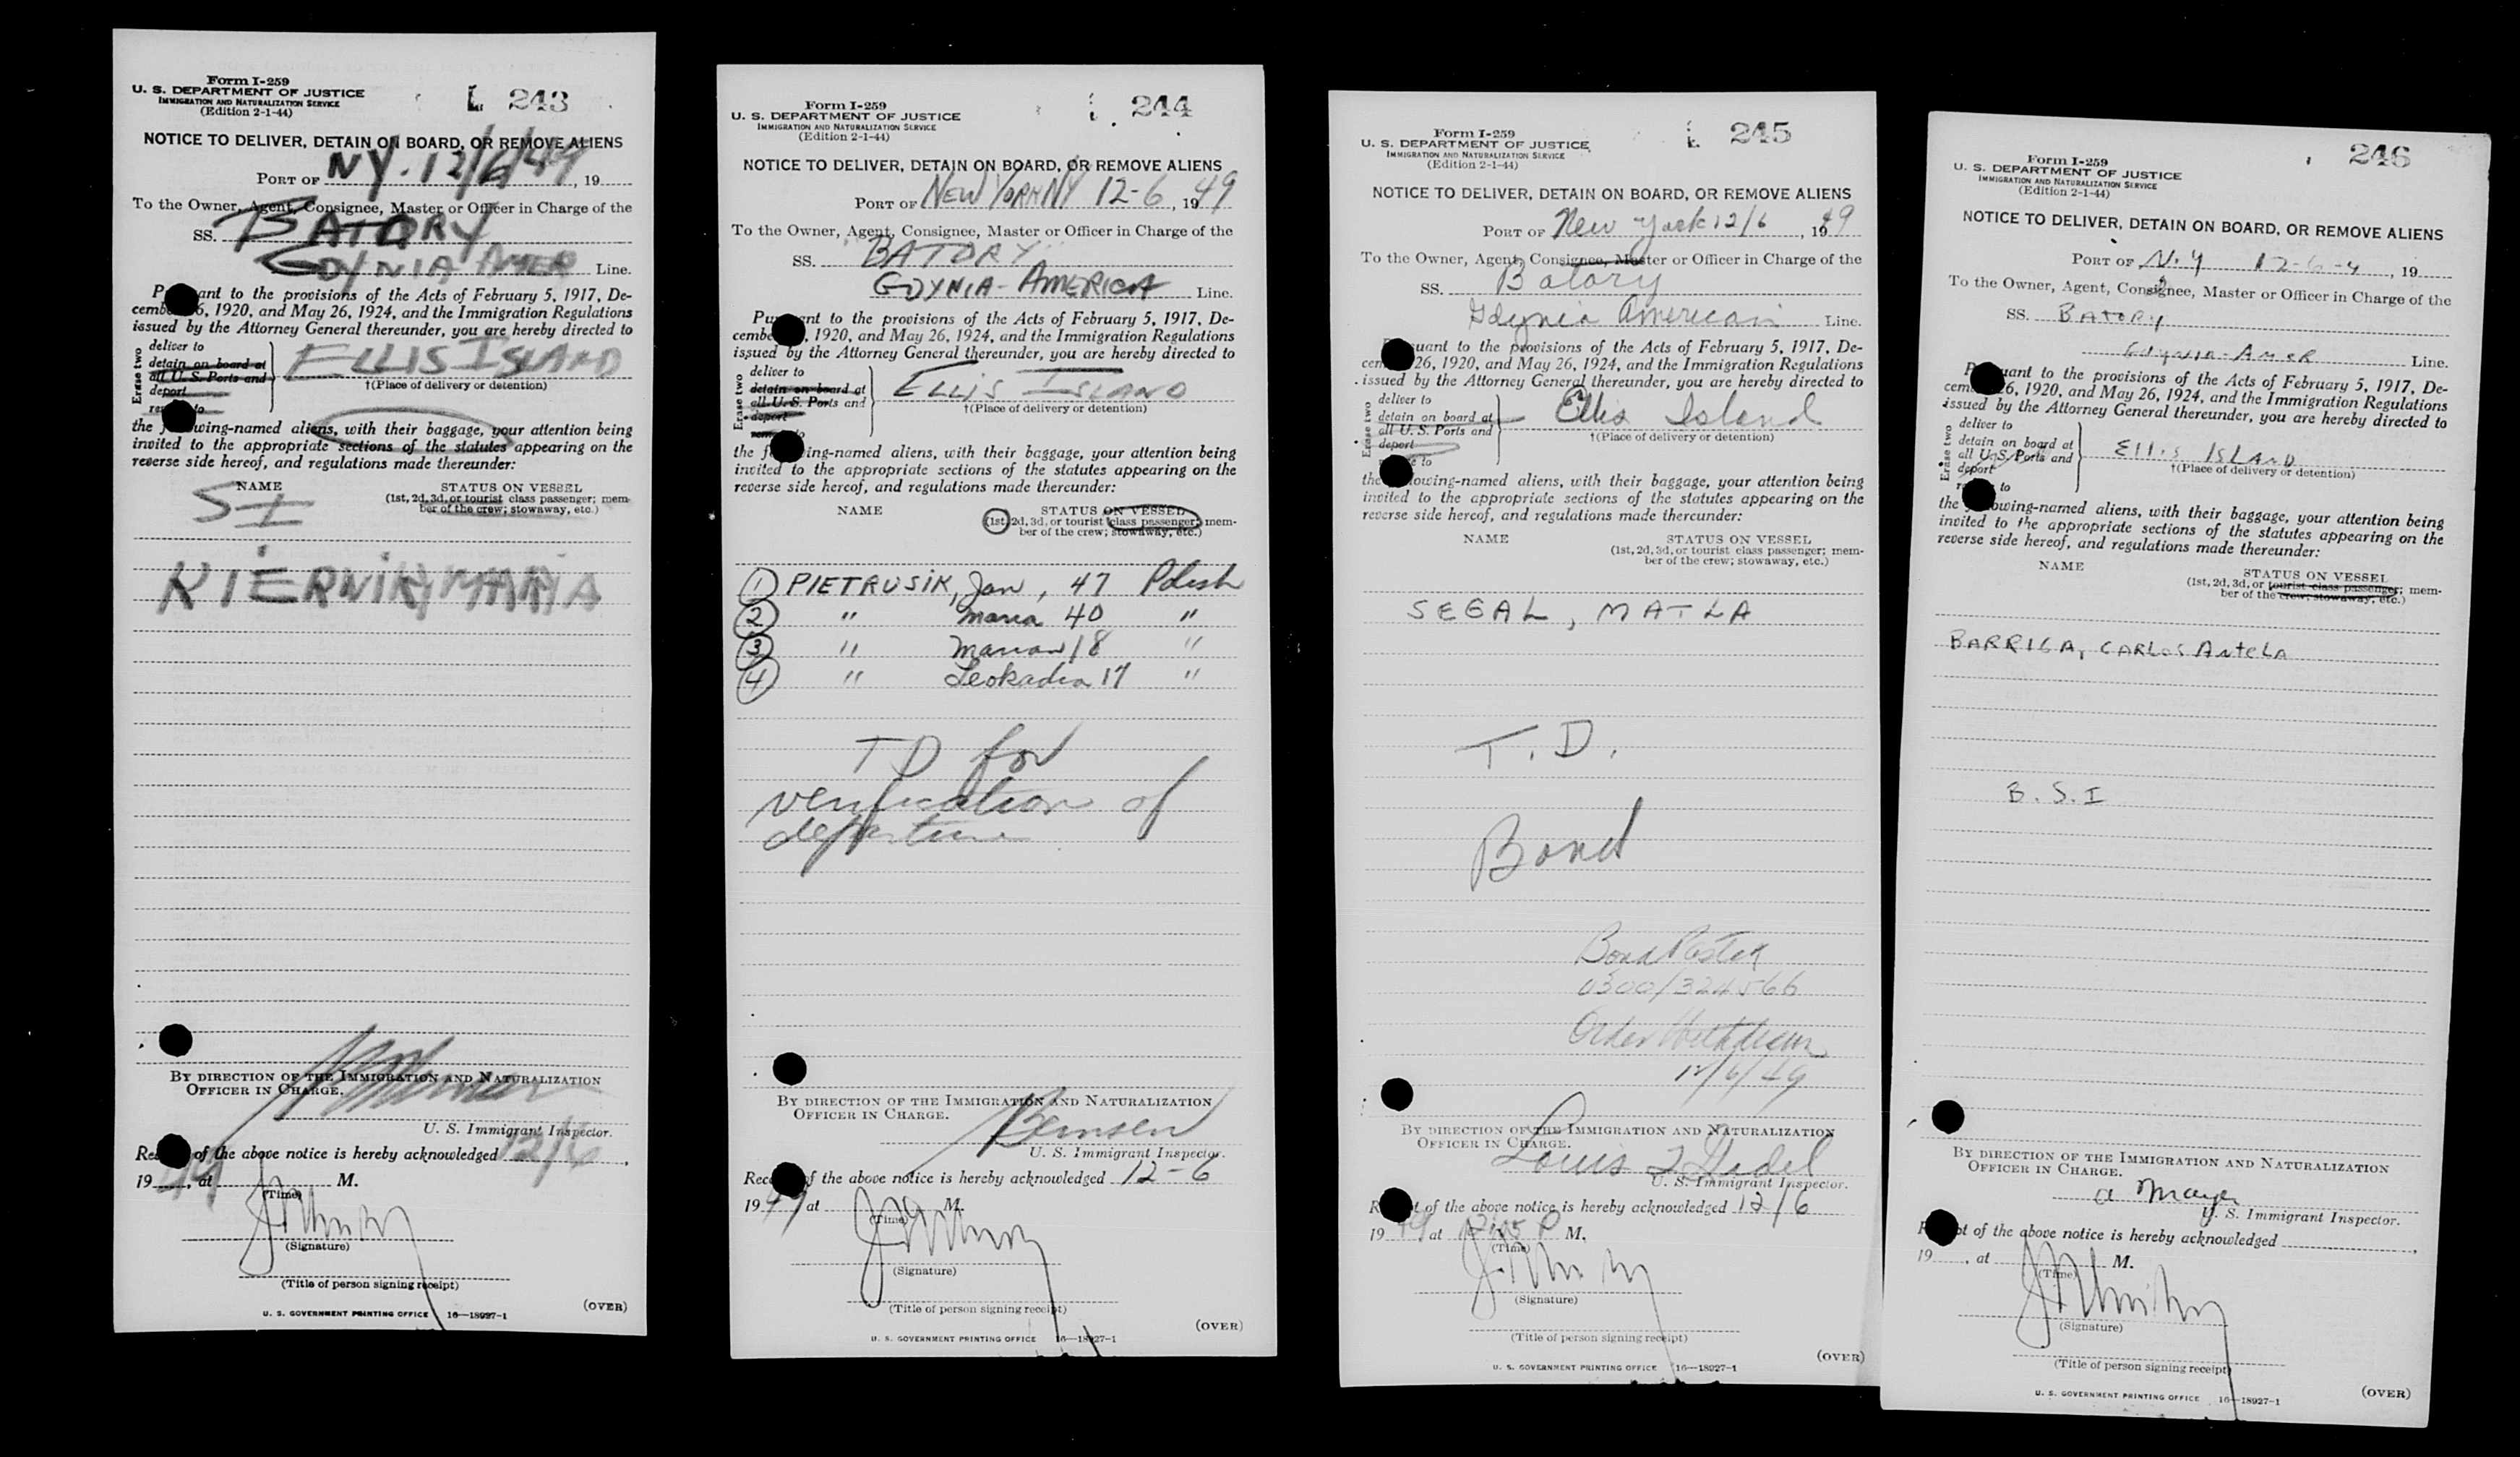 Form I-259
U. S. DEPARTMENT OF JUSTICE
IMMIGRATION AND NATURALIZATION SERVICE
(Edition 2-1-44)
L 243
NOTICE TO DELIVER, DETAIN ON BOARD, OR REMOVE ALIENS
PORT OF NY. 12/6/49, 19
To the Owner, Agent, Consignee, Master or Officer in Charge of the
SS. BATORY
GDYNIA AMER Line.
P ant to the provisions of the Acts of February 5, 1917, De-
cemb 6, 1920, and May 26, 1924, and the Immigration Regulations
issued by the Attorney General thereunder, you are hereby directed to
Erase two
deliver to
detain on board at
all U. S. Ports and
deport
re to
ELLIS ISLAND
†(Place of delivery or detention)
the f wing-named aliens, with their baggage, your attention being
invited to the appropriate sections of the statutes appearing on the
reverse side hereof, and regulations made thereunder:
NAME STATUS ON VESSEL
(1st, 2d, 3d, or tourist class passenger; mem-
ber of the crew; stowaway, etc.)
SI
KIERNIK, MARIA
BY DIRECTION OF THE IMMIGRATION AND NATURALIZATION
OFFICER IN CHARGE.
U. S. Immigrant Inspector.
Re of the above notice is hereby acknowledged 12/6,
19 49, at M.
(Time)
(Signature)
(Title of person signing receipt)
U. S. GOVERNMENT PRINTING OFFICE 16—18927-1
(OVER)
Form I-259
U. S. DEPARTMENT OF JUSTICE
IMMIGRATION AND NATURALIZATION SERVICE
(Edition 2-1-44)
244
NOTICE TO DELIVER, DETAIN ON BOARD, OR REMOVE ALIENS
PORT OF NEW YORK NY 12-6, 1949
To the Owner, Agent, Consignee, Master or Officer in Charge of the
SS. "BATORY"
GDYNIA-AMERICA Line.
Pu nt to the provisions of the Acts of February 5, 1917, De-
cembe , 1920, and May 26, 1924, and the Immigration Regulations
issued by the Attorney General thereunder, you are hereby directed to
Erase two
deliver to
detain on board at
all U. S. Ports and
deport
to
ELLIS ISLAND
†(Place of delivery or detention)
the f ing-named aliens, with their baggage, your attention being
invited to the appropriate sections of the statutes appearing on the
reverse side hereof, and regulations made thereunder:
NAME STATUS ON VESSEL
(1st, 2d, 3d, or tourist class passenger; mem-
ber of the crew; stowaway, etc.)
1 PIETRUSIK, Jan, 47 Polish
2 " Maria 40 "
3 " Marian 18 "
4 " Leokadia 17 "
TD for
verification of
departure
BY DIRECTION OF THE IMMIGRATION AND NATURALIZATION
OFFICER IN CHARGE.
U. S. Immigrant Inspector.
Rece f the above notice is hereby acknowledged 12-6
1949 at M.
(Time)
(Signature)
(Title of person signing receipt)
U. S. GOVERNMENT PRINTING OFFICE 16—18927-1
(OVER)
Form I-259
U. S. DEPARTMENT OF JUSTICE
IMMIGRATION AND NATURALIZATION SERVICE
(Edition 2-1-44)
L 245
NOTICE TO DELIVER, DETAIN ON BOARD, OR REMOVE ALIENS
PORT OF New York 12/6, 1949
To the Owner, Agent, Consignee, Master or Officer in Charge of the
SS. Batory
Gdynia American Line.
uant to the provisions of the Acts of February 5, 1917, De-
cem 26, 1920, and May 26, 1924, and the Immigration Regulations
issued by the Attorney General thereunder, you are hereby directed to
Erase two
deliver to
detain on board at
all U. S. Ports and
deport
e to
Ellis Island
†(Place of delivery or detention)
the owing-named aliens, with their baggage, your attention being
invited to the appropriate sections of the statutes appearing on the
reverse side hereof, and regulations made thereunder:
NAME STATUS ON VESSEL
(1st, 2d, 3d, or tourist class passenger; mem-
ber of the crew; stowaway, etc.)
SEGAL, MATLA
T.D.
Bond
Bond Posted
0300/324566
Order Withdrawn
12/6/49
BY DIRECTION OF THE IMMIGRATION AND NATURALIZATION
OFFICER IN CHARGE.
Louis
U. S. Immigrant Inspector.
R t of the above notice is hereby acknowledged 12/6
1949 at P M.
(Time)
(Signature)
(Title of person signing receipt)
U. S. GOVERNMENT PRINTING OFFICE 16—18927-1
(OVER)
Form I-259
U. S. DEPARTMENT OF JUSTICE
IMMIGRATION AND NATURALIZATION SERVICE
(Edition 2-1-44)
246
NOTICE TO DELIVER, DETAIN ON BOARD, OR REMOVE ALIENS
PORT OF N.Y 12-6-4, 19
To the Owner, Agent, Consignee, Master or Officer in Charge of the
SS. BATORY
GDYNIA-AMER Line.
P uant to the provisions of the Acts of February 5, 1917, De-
cem 26, 1920, and May 26, 1924, and the Immigration Regulations
issued by the Attorney General thereunder, you are hereby directed to
Erase two
deliver to
detain on board at
all U. S. Ports and
deport
r to
Ellis ISLAND
†(Place of delivery or detention)
the owing-named aliens, with their baggage, your attention being
invited to the appropriate sections of the statutes appearing on the
reverse side hereof, and regulations made thereunder:
NAME STATUS ON VESSEL
(1st, 2d, 3d, or tourist class passenger; mem-
ber of the crew; stowaway, etc.)
BARRIGA, CARLOS ANTELA
B.S.I
BY DIRECTION OF THE IMMIGRATION AND NATURALIZATION
OFFICER IN CHARGE.
a Mayer
U. S. Immigrant Inspector.
R pt of the above notice is hereby acknowledged ,
19 , at M.
(Time)
(Signature)
(Title of person signing receipt)
U. S. GOVERNMENT PRINTING OFFICE 16—18927-1
(OVER)